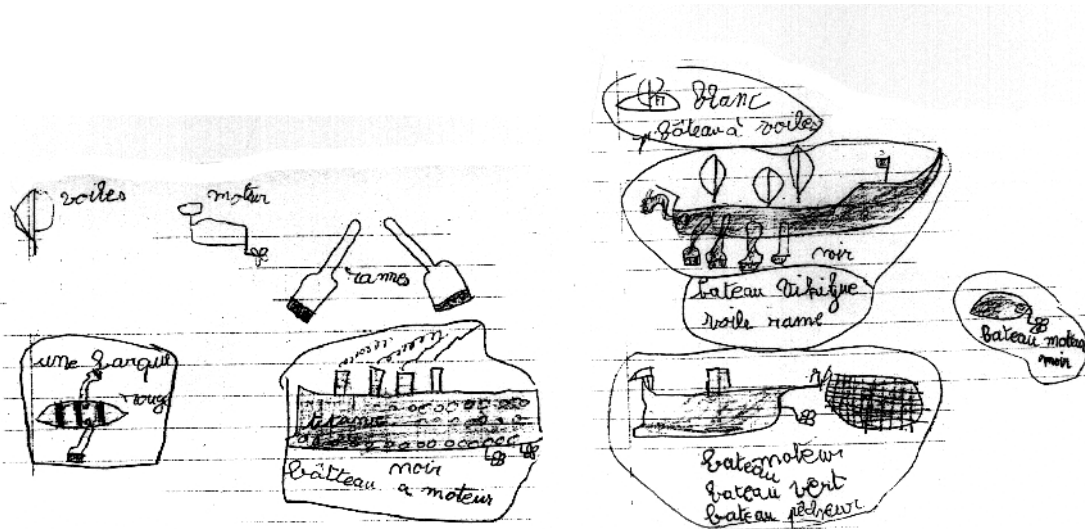 voiles
moteur
rames
une barque
rouge
titanic
noir
bâtteau a moteur
blanc
bâteau à voiles
noir
bateau vikihue
voile rame
bateau moteur
noir
bateau moteur
bateau
bateau vert
bateau pêcheur